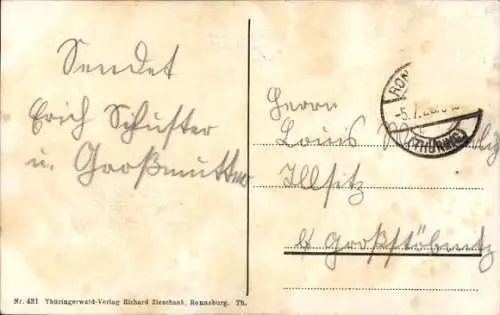 Sendet
Erich Schuster
u. Großmutter
Herrn
Louis
Illsitz
b/ Großstöbnitz
RON
-5.7.
(THÜRING)
Nr. 421 Thüringerwald-Verlag Richard Zieschank, Ronneburg. Th.